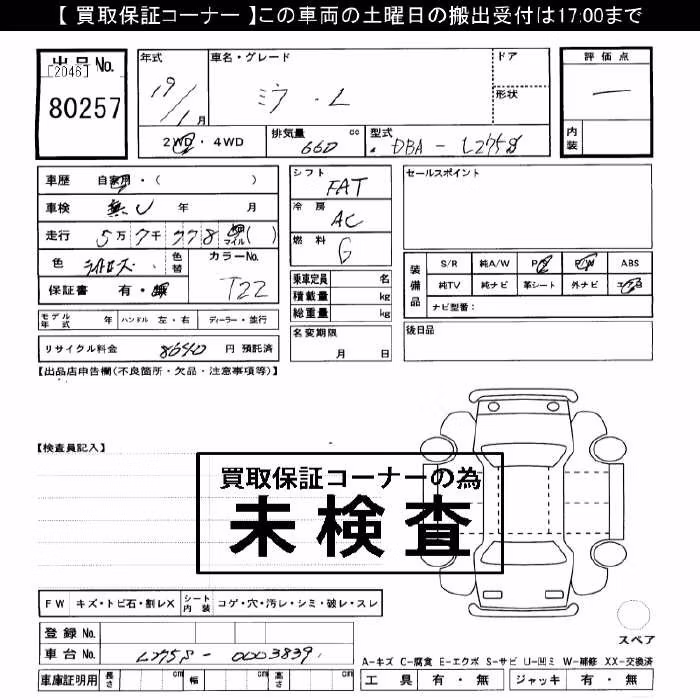 【 買取保証コーナー 】この車両の土曜日の搬出受付は17:00まで
出品No.
[2046]
80257
年式 車名・グレード ドア
19/1月 ミラ ・ L 形状
2WD・4WD 排気量 660 cc 型式 DBA - L275S
評価点
—
内装
車歴 自家用・( )
車検 無し 年 月
走行 5万7千778 マイル ( )
色 ライトローズ 色替 カラーNo.
T22
保証書 有・無
シフト FAT
冷房 AC
燃料 G
乗車定員 名
積載量 kg
総重量 kg
名変期限
月 日
セールスポイント
装備品
S/R 純A/W P/S P/W ABS
純TV 純ナビ 革シート 外ナビ エアB
ナビ型番:
後日品
モデル年式 年 ハンドル 左・右 ディーラー・並行
リサイクル料金 8640 円 預託済
【出品店申告欄(不良箇所・欠品・注意事項等)】
【検査員記入】
買取保証コーナーの為
未検査
FW キズ・トビ石・割レX シート内装 コゲ・穴・汚レ・シミ・破レ・スレ
登録No.
車台No. L275S - 0003839
車庫証明用 長さ cm 幅 cm 高さ cm
スペア
A-キズ C-腐食 E-エクボ S-サビ U-凹ミ W-補修 XX-交換済
工具 有・無 ジャッキ 有・無